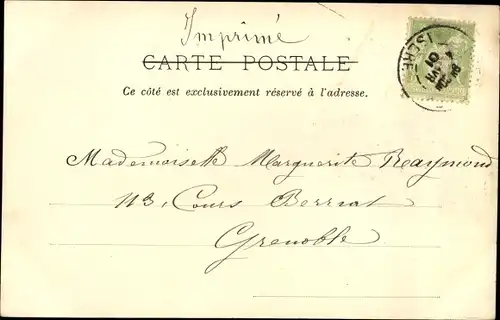 Imprimé
CARTE POSTALE
Ce côté est exclusivement réservé à l'adresse.
ISERE
Mademoiselle Marguerite Raymond
113, Cours Berriat
Grenoble